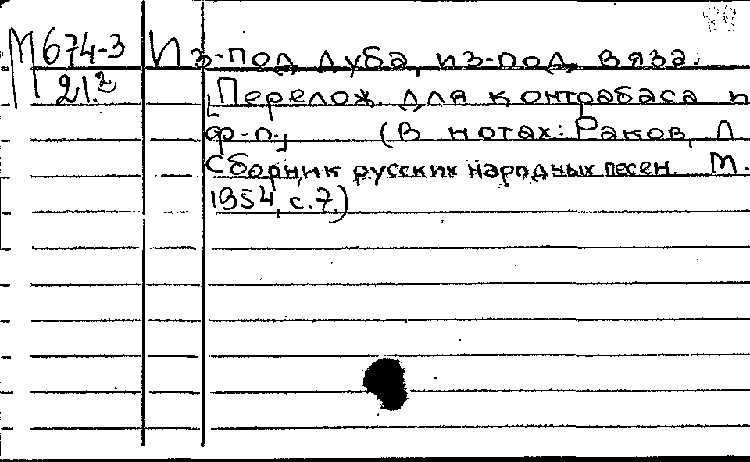 М 674-3 Из-под дуба, из-под вяза.
21.2 [Перелож. для контрабаса и
ф-п.] (В нотах: Раков, Л.
Сборник русских народных песен. М.
1954, с.7.)